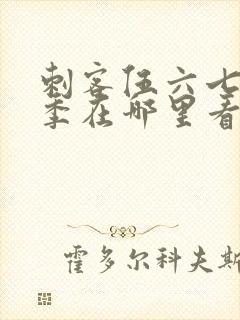 刺客伍六七
季在哪里看
霍多尔科夫斯